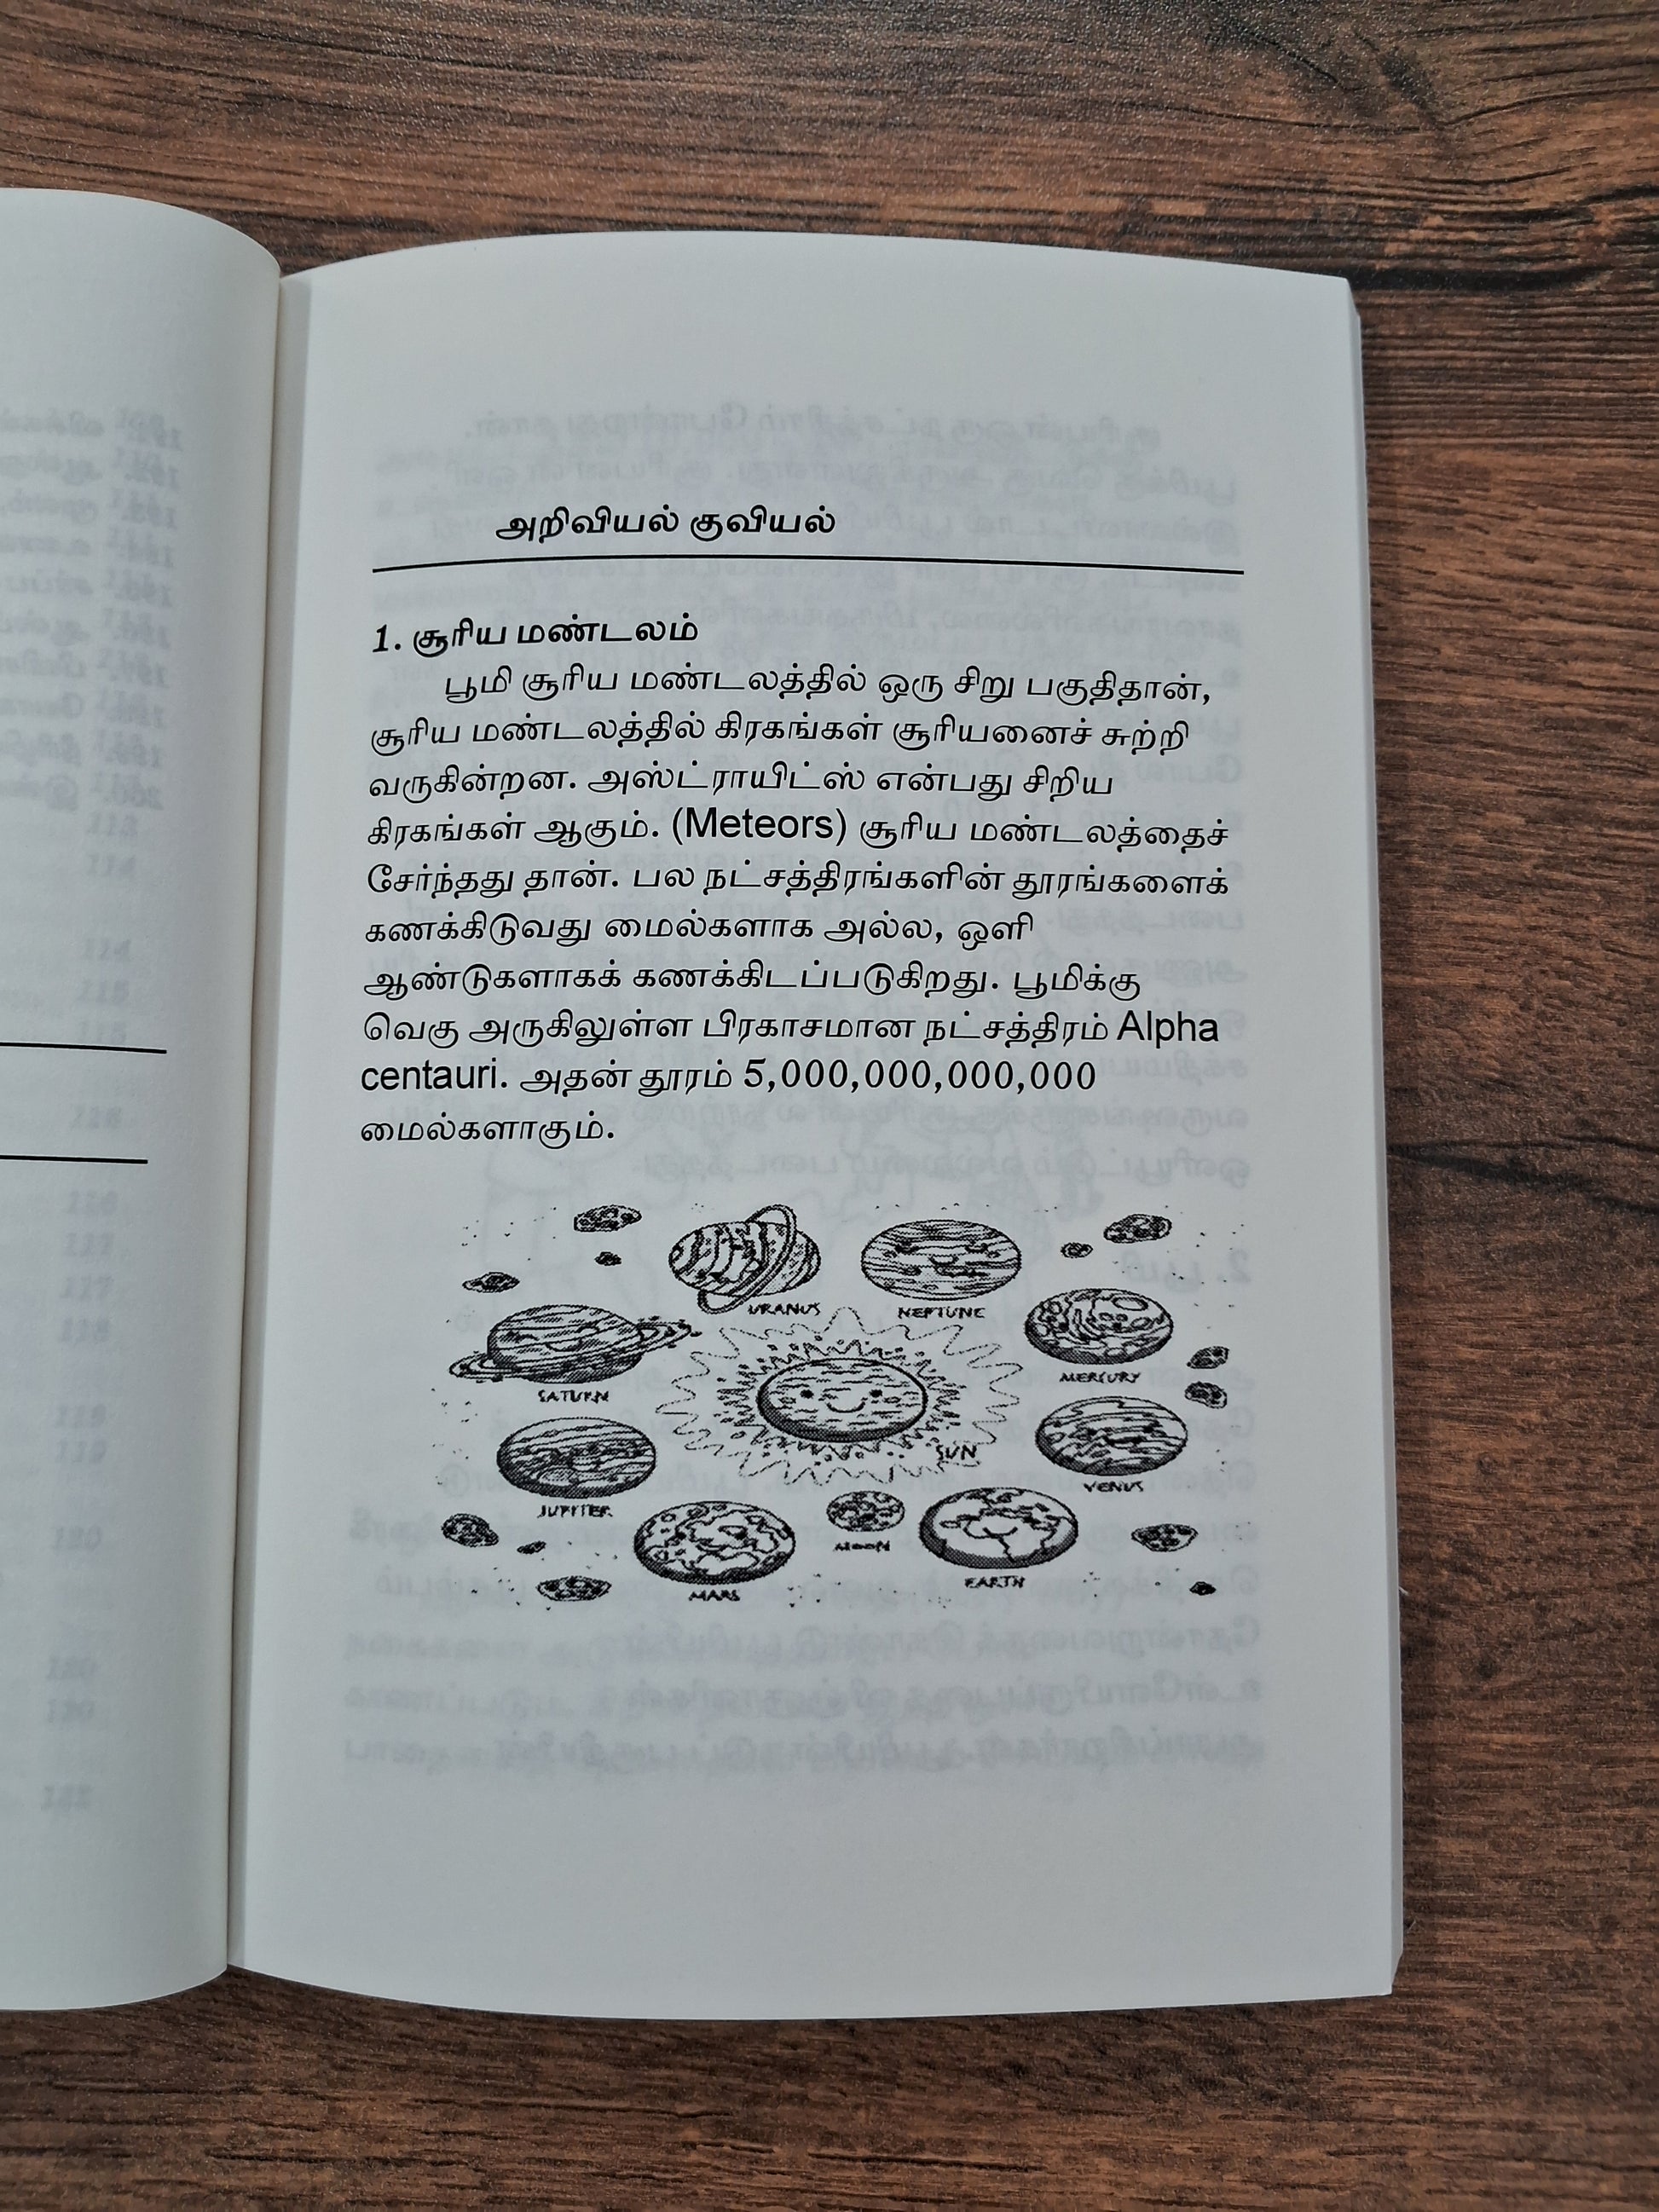 அறிவியல் குவியல்
1. சூரிய மண்டலம்
பூமி சூரிய மண்டலத்தில் ஒரு சிறு பகுதிதான்,
சூரிய மண்டலத்தில் கிரகங்கள் சூரியனைச் சுற்றி
வருகின்றன. அஸ்ட்ராயிட்ஸ் என்பது சிறிய
கிரகங்கள் ஆகும். (Meteors) சூரிய மண்டலத்தைச்
சேர்ந்தது தான். பல நட்சத்திரங்களின் தூரங்களைக்
கணக்கிடுவது மைல்களாக அல்ல, ஒளி
ஆண்டுகளாகக் கணக்கிடப்படுகிறது. பூமிக்கு
வெகு அருகிலுள்ள பிரகாசமான நட்சத்திரம் Alpha
centauri. அதன் தூரம் 5,000,000,000,000
மைல்களாகும்.
URANUS
NEPTUNE
MERCURY
SATURN
SUN
VENUS
JUPITER
MOON
EARTH
MARS